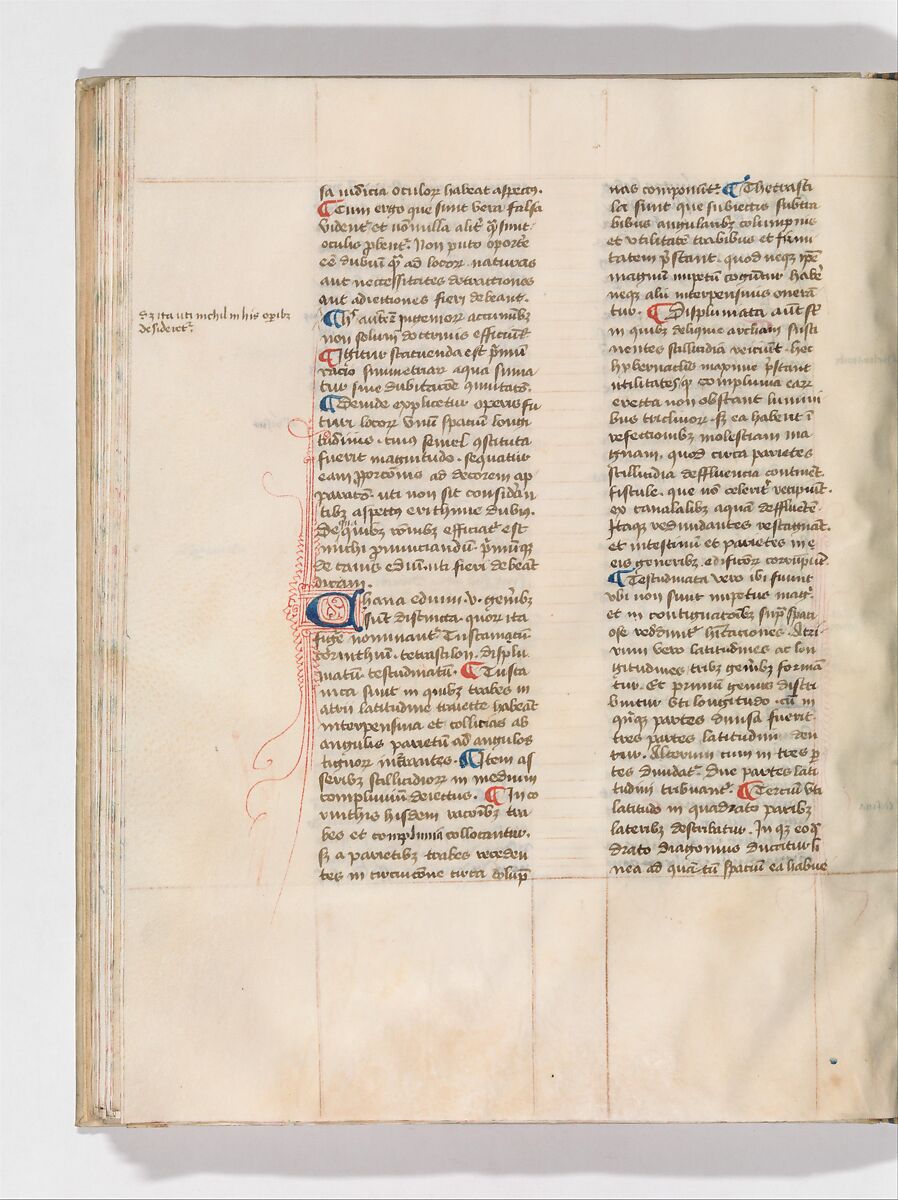 sa iudicia oculor habeat aspectus.
Cum ergo que sunt vera falsa
vident et nonnulla alit q̃ sunt
oculis ꝓbent. Non puto oporte
eẽ dubiũ q̃ ad locor naturas
aut necessitates detractiones
aut adiectiones fieri debeant.
autem ingenior acuminibꝫ
non solum doctrinis efficiunt
Igitur statuenda est p̃mũ
racio simmetriar aqua suma
tur sine dubitacõe
Deinde explicetur operis fu
turi locor vnũ spatium longi
tudinis. cuius semel ꝯstituta
fuerit magnitudo. sequatur
eam ꝓporcõnis ad decorem ap
paratꝯ. uti non sit considan
tibꝫ aspectus erithmie dubius.
De quibus efficiat est
michi pronunciandũ. p̃mũqꝫ
de cauis ediũ. uti fieri debeãt
dicam.
Chaua edium .v. genibꝫ
sunt distincta. quor ita
fuge nominant. Tuscanicũ
corinthiũ. tetrastilon. displu
uiatũ. testudinatũ. Tusca
nica sunt in quibꝫ trabes in
atrii latitudine traiecte habeãt
interpensiua et collicias ab
angulis parietũ ad angulos
tignor incurrantes. Item as
seribꝫ stillicidior in medium
compluuiũ deiectus. In co
rinthiis hisdem racõibꝫ tra
bes et compluuia collocantur.
sꝫ a parietibꝫ trabes receden
tes in circuicõne circa colũp
nas componũt. Thetrasti
la sunt que subiectis subtra
bibus angularibꝫ columpnis
et vtilitatẽ trabibus et firmi
tatem p̃stant. quod neqꝫ ip̃e
magnũ impetũ coguntur habẽ
neqꝫ alii interpensiuis onerã
tur. Displuuiata aut st̃
in quibꝫ delique archam susti
nentes stillicidia reiciunt. hec
hybernaclis maxime p̃stant
utilitates qꝫ compluuia ear
erecta non obstant lumini
bus triclinior. sꝫ ea habent ĩ
refectionibꝫ molestiam ma
gnam. quod circa parietes
stillicidia deffluencia continẽt
fistule. que nõ celerit recipiunt
ex canalibꝫ aquã deffluẽtẽ.
Itaqꝫ redundantes restagnant.
et intestinũ et parietes in e
eis generibꝫ edificior corrũpũt.
Testudinata vero ibi fiunt
vbi non sunt impetus mag.
et in contignacõibꝫ sup̃ spaci
ose reddunt hitaciones. Atri
orum vero latitudines ac lon
gitudines tribꝫ genibꝫ formã
tur. Et primum genus disti
buitur vti longitudo. cũ in
qũqꝫ partes diuisa fuerit.
tres partes latitudini den
tur. Alterum cum in tres p
tes diuidat. Due partes lati
tudini tribuant. Tercium vti
latitudo in quadrato paribꝫ
lateribꝫ describatur. In qꝫ eo q̃
drato diagonius ducatur li
nea ad quãtũ spacium ea habue
ita uti nichil in his opibꝫ
desideret.